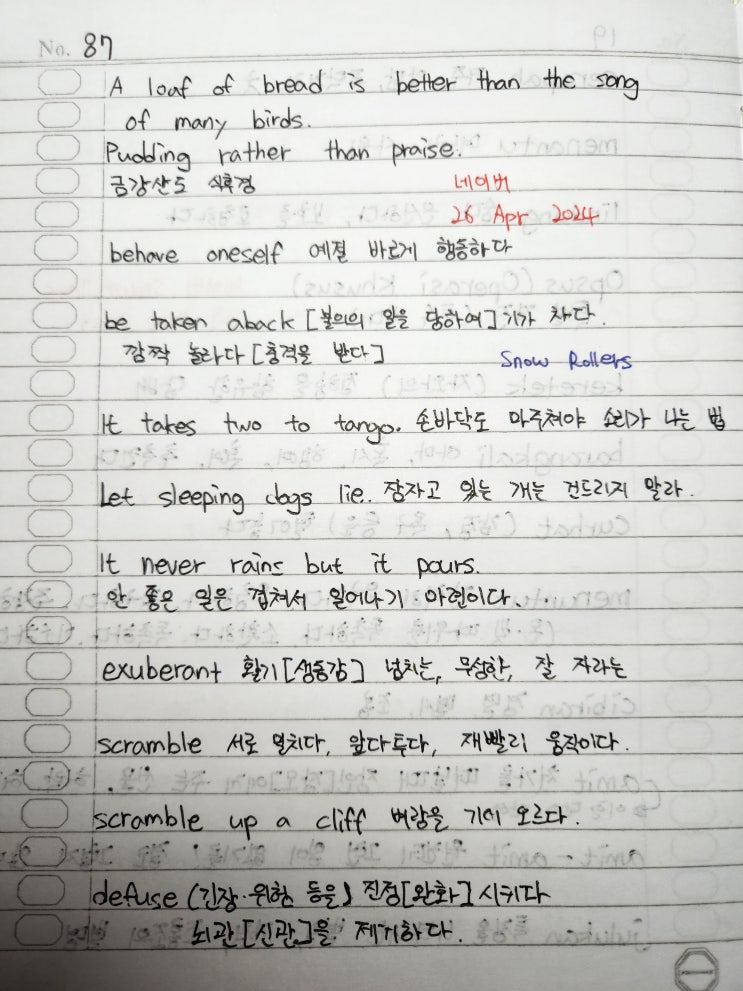 No. 87
A loaf of bread is better than the song
of many birds.
Pudding rather than praise.
금강산도 식후경 네이버
26 Apr 2024
behave oneself 예절 바르게 행동하다
be taken aback [불의의 일을 당하여] 기가 차다.
깜짝 놀라다 [충격을 받다] Snow Rollers
It takes two to tango. 손바닥도 마주쳐야 소리가 나는 법
Let sleeping dogs lie. 잠자고 있는 개는 건드리지 말라.
It never rains but it pours.
안 좋은 일은 겹쳐서 일어나기 마련이다.
exuberant 활기[생동감] 넘치는, 무성한, 잘 자라는
scramble 서로 밀치다, 앞다투다, 재빨리 움직이다.
scramble up a cliff 벼랑을 기어 오르다.
defuse (긴장·위험 등을) 진정[완화] 시키다
뇌관[신관]을 제거하다.